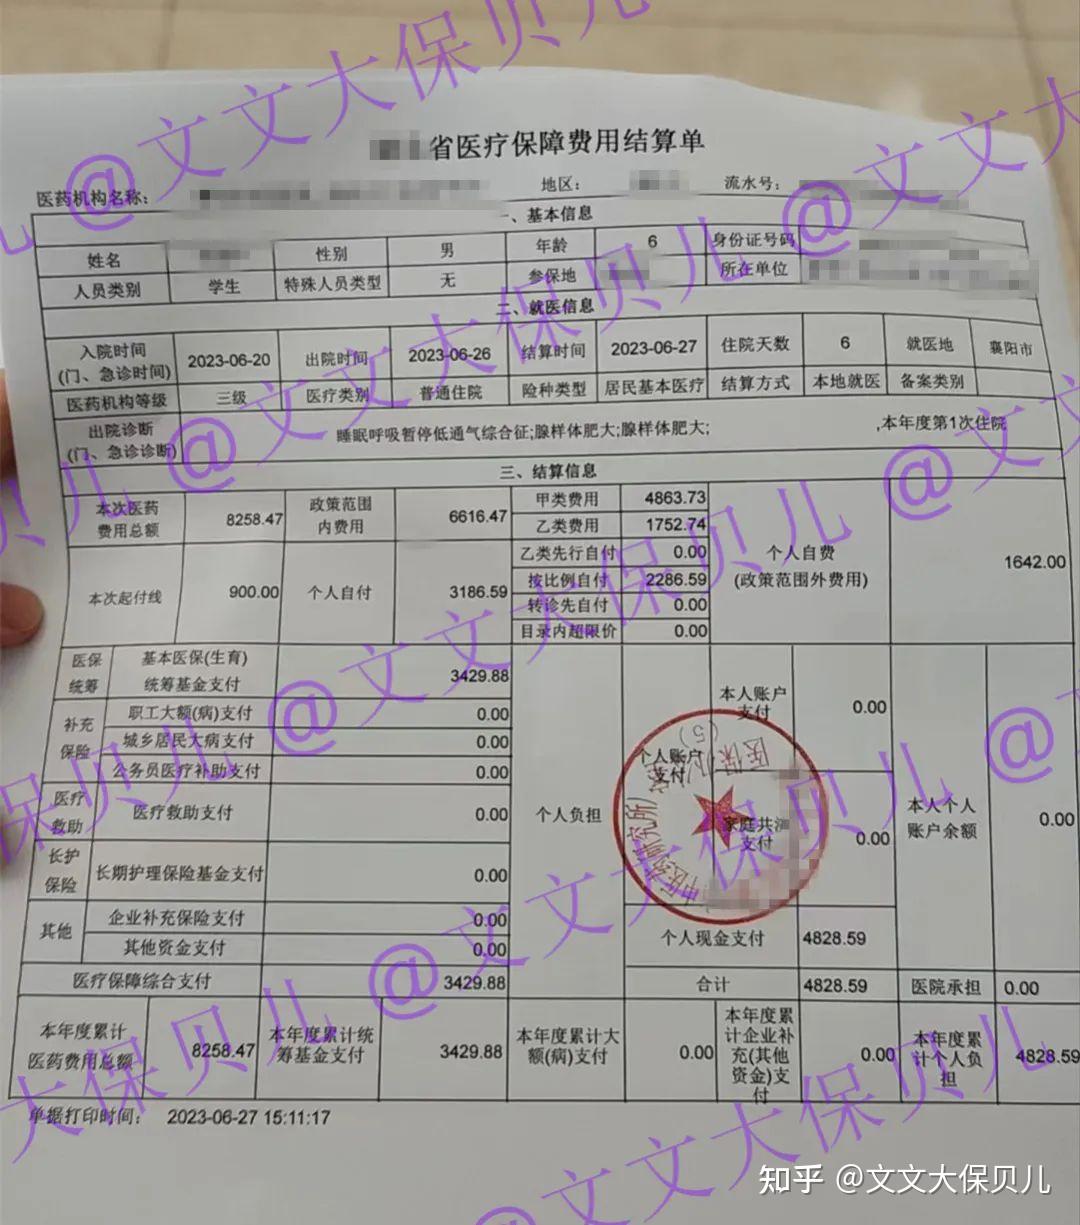 省医疗保障费用结算单
医药机构名称: 地区: 流水号:
一、基本信息
姓名 性别 男 年龄 6 身份证号码
人员类别 学生 特殊人员类型 无 参保地 所在单位
二、就医信息
入院时间 (门、急诊时间) 2023-06-20 出院时间 2023-06-26 结算时间 2023-06-27 住院天数 6 就医地 襄阳市
医药机构等级 三级 医疗类别 普通住院 险种类型 居民基本医疗 结算方式 本地就医 备案类别
出院诊断 (门、急诊诊断) 睡眠呼吸暂停低通气综合征;腺样体肥大;腺样体肥大; ,本年度第1次住院
三、结算信息
本次医药费用总额 8258.47 政策范围内费用 6616.47 甲类费用 4863.73
乙类费用 1752.74
本次起付线 900.00 个人自付 3186.59 乙类先行自付 0.00 个人自费 (政策范围外费用) 1642.00
按比例自付 2286.59
转诊先自付 0.00
目录内超限价 0.00
医保统筹 基本医保(生育)统筹基金支付 3429.88
补充保险 职工大额(病)支付 0.00
城乡居民大病支付 0.00
公务员医疗补助支付 0.00
医疗救助 医疗救助支付 0.00
长护保险 长期护理保险基金支付 0.00
其他 企业补充保险支付 0.00
其他资金支付 0.00
个人负担 个人账户支付 本人账户支付 0.00
家庭共济支付 0.00
本人个人账户余额 0.00
个人现金支付 4828.59
医疗保障综合支付 3429.88 合计 4828.59 医院承担 0.00
本年度累计医药费用总额 8258.47 本年度累计统筹基金支付 3429.88 本年度累计大额(病)支付 0.00 本年度累计企业补充(其他资金)支付 0.00 本年度累计个人负担 4828.59
单据打印时间: 2023-06-27 15:11:17
医保办
(5)
@文文大保贝儿
知乎 @文文大保贝儿